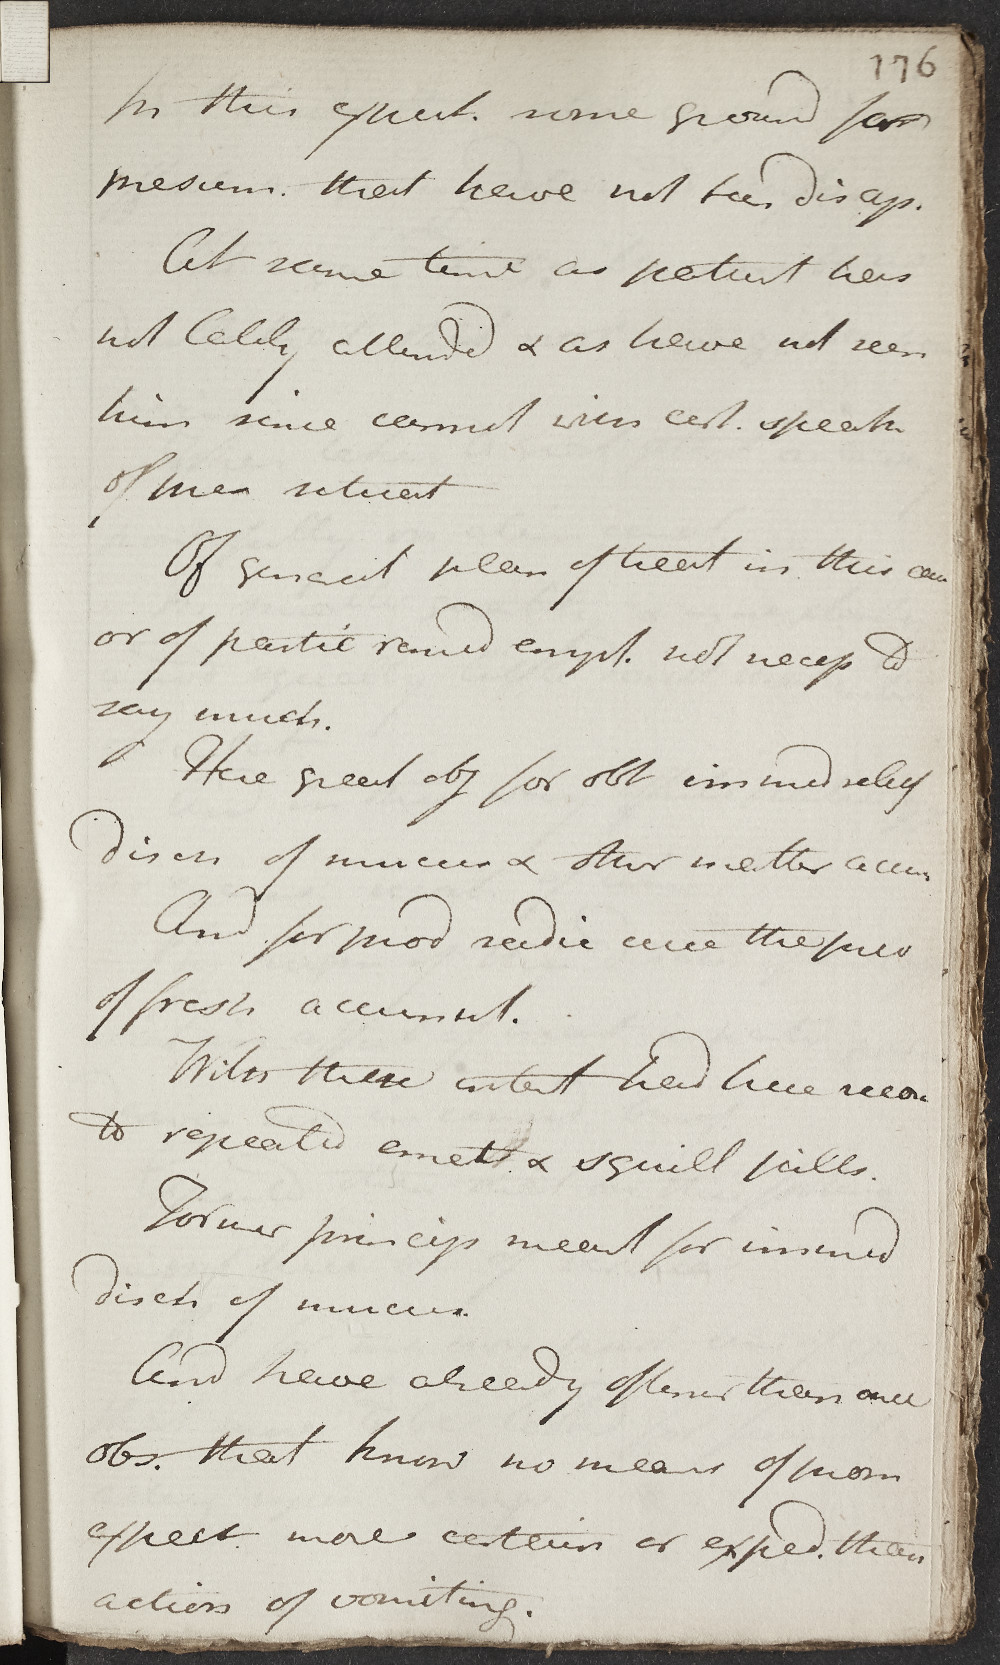 176
In this expect. some ground for
presum. that have not been disap.
At same time as patient has
not lately attended & as have not seen
him since cannot with cert. speak
of pres situat
Of general plan of treat in this case
or of partic remed empl. not necess to
say much.
Here great obj for obt immed relief
disch of mucus & other matter accum
And for prod radic cure the prev
of fresh accumul.
With these intent had here recou
to repeated emet. & squill pills.
Former princip meant for immed
disch of mucus.
And have already oftener than once
obs. that know no means of prom
expect more certain or exped. than
action of vomiting.